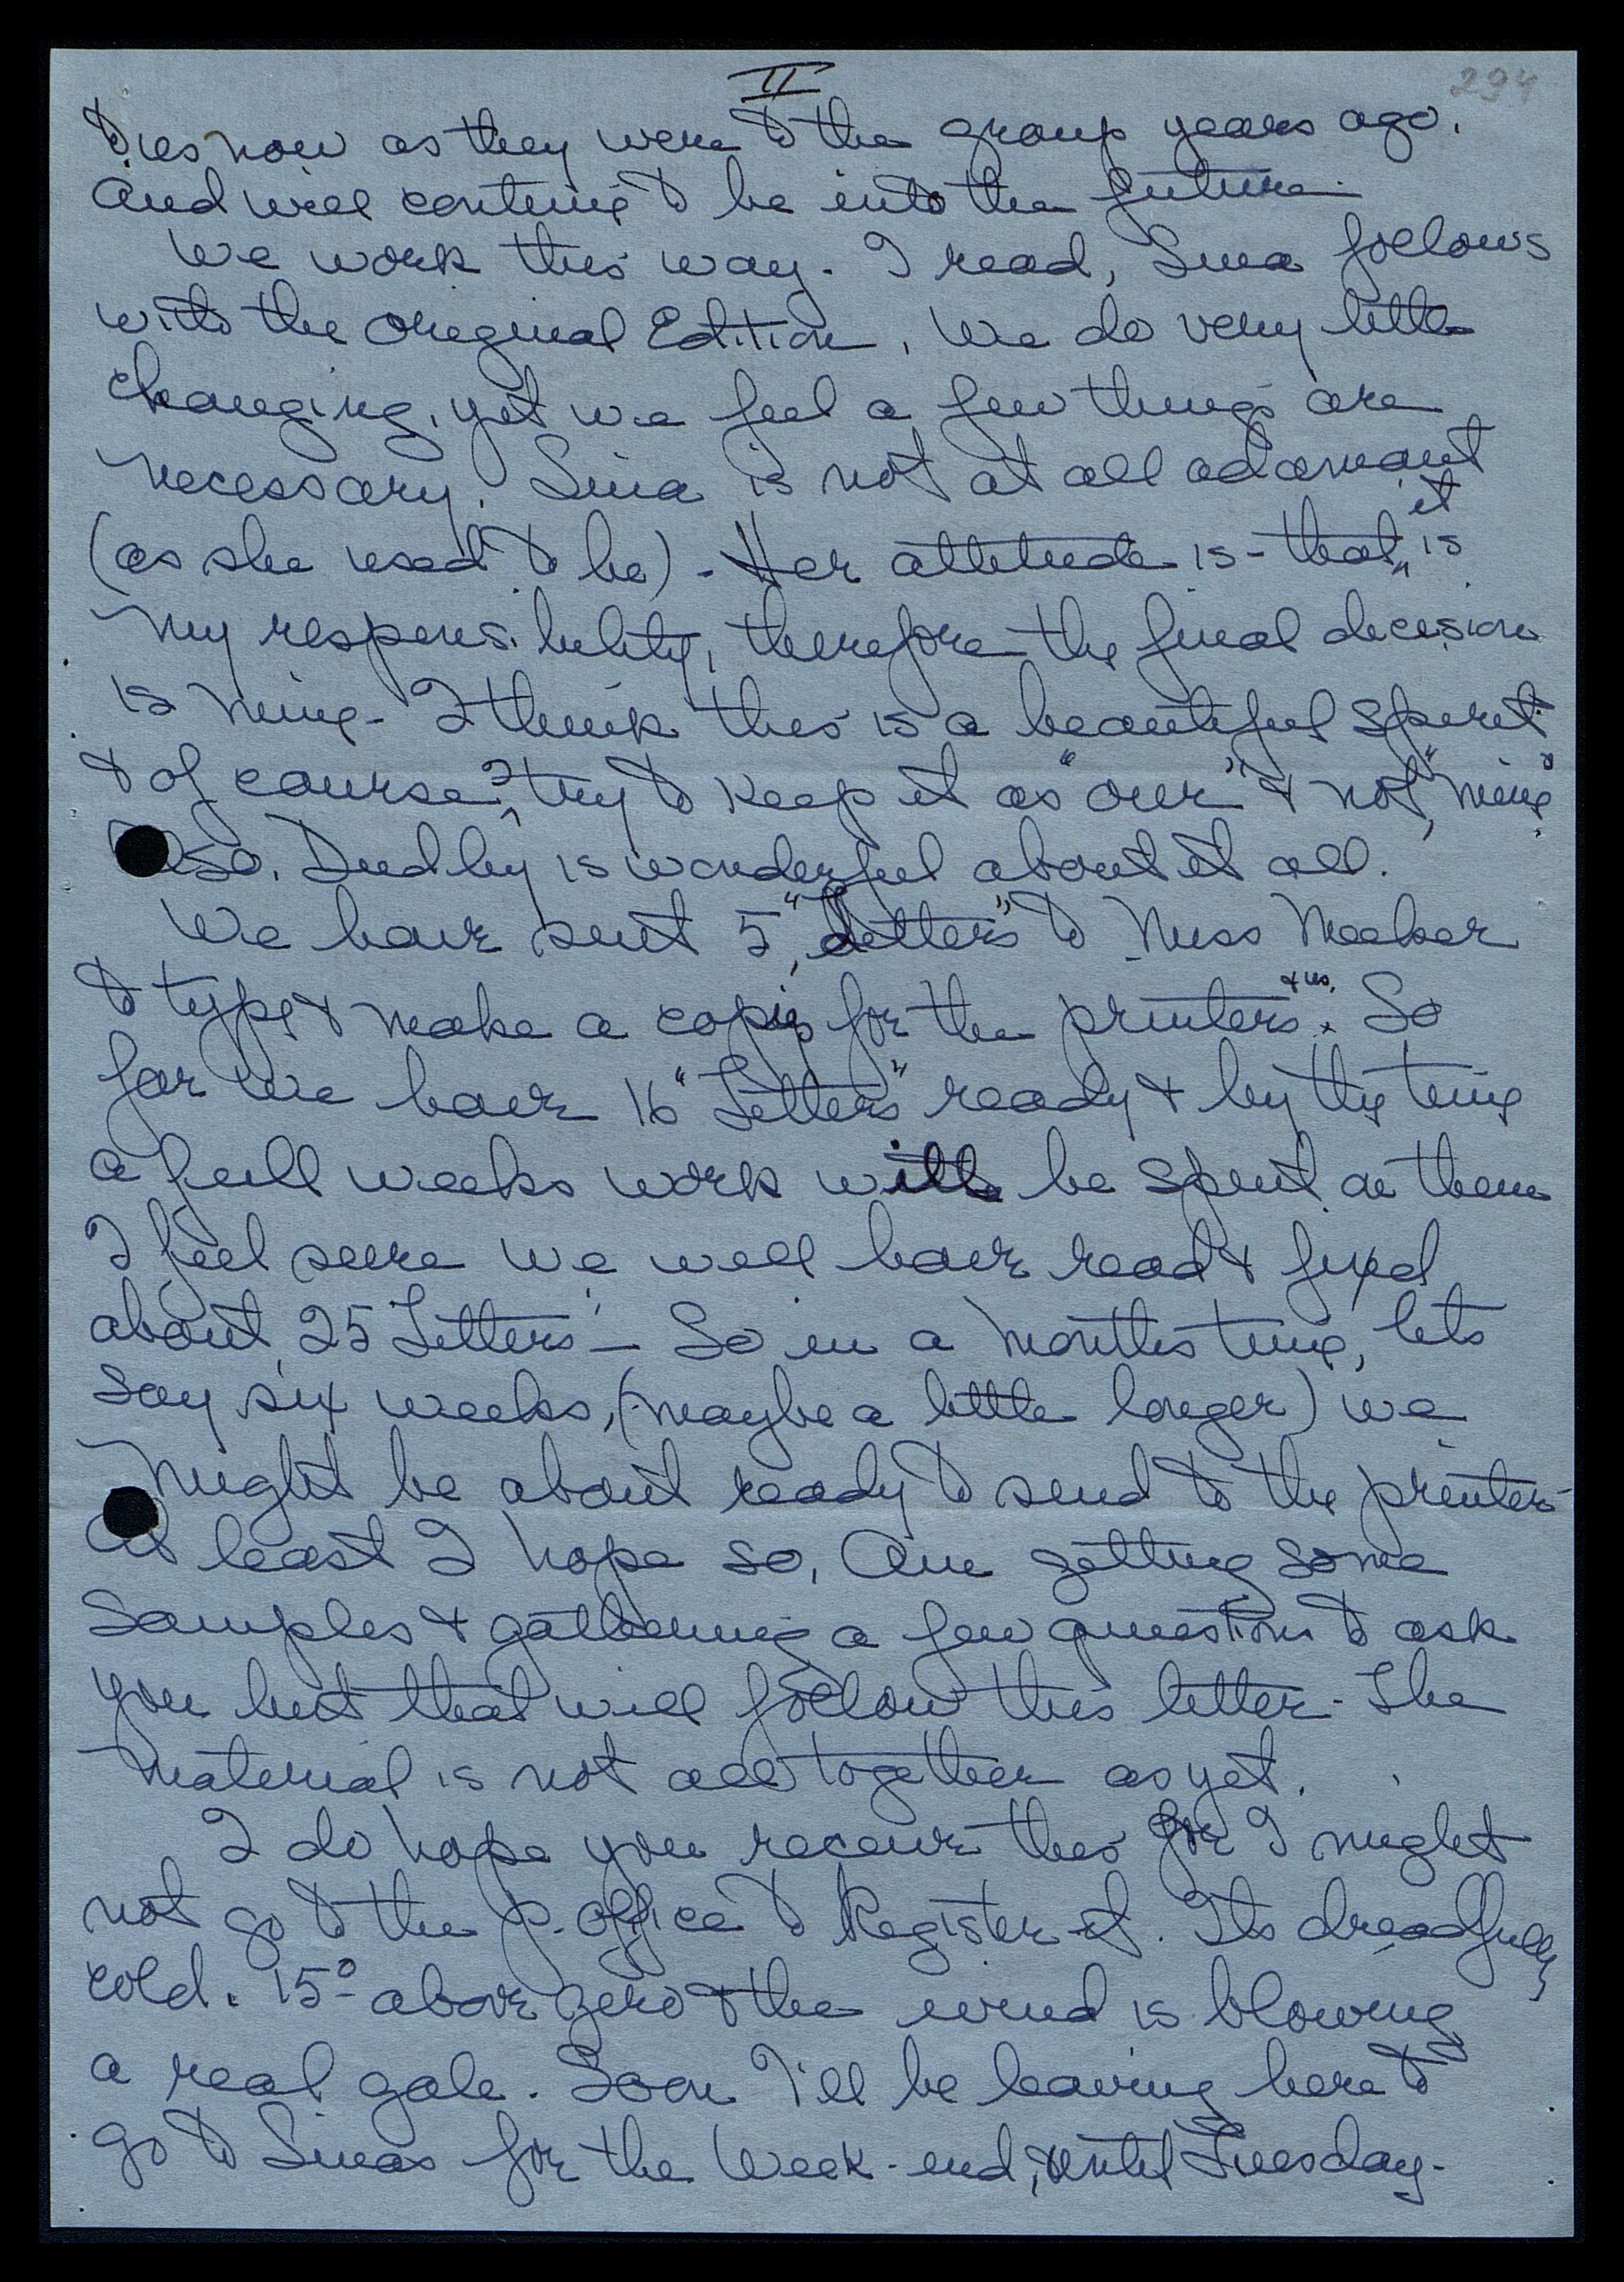 II
294
to us now as they were to the group years ago.
And will continue to be into the future.
We work this way. I read, Sina follows
with the Original Edition. We do very little
changing, yet we feel a few things are
necessary. Sina is not at all adamant
(as she used to be) - Her attitude is - that it is
my responsibility, therefore the final decision
is mine - I think this is a beautiful spirit
& of course I try to keep it as "our" & not "mine"
also. Dudley is wonderful about it all.
We have sent 5 "Letters" to Miss Meeker
to type & make a copies for the printers & us. So
far we have 16 "Letters" ready & by the time
a full weeks work will be spent on them
I feel sure we will have read & fixed
about 25 Letters - So in a months time, lets
say six weeks, (maybe a little longer) we
might be about ready to send to the printers -
At least I hope so. Am getting some
Samples & gathering a few questions to ask
you but that will follow this letter - The
material is not all together as yet.
I do hope you receive this for I might
not go to the P. Office to Register it. Its dreadfully
cold. 15° above zero & the wind is blowing
a real gale. Soon I'll be leaving here to
go to Sinas for the Week-end, until Tuesday -